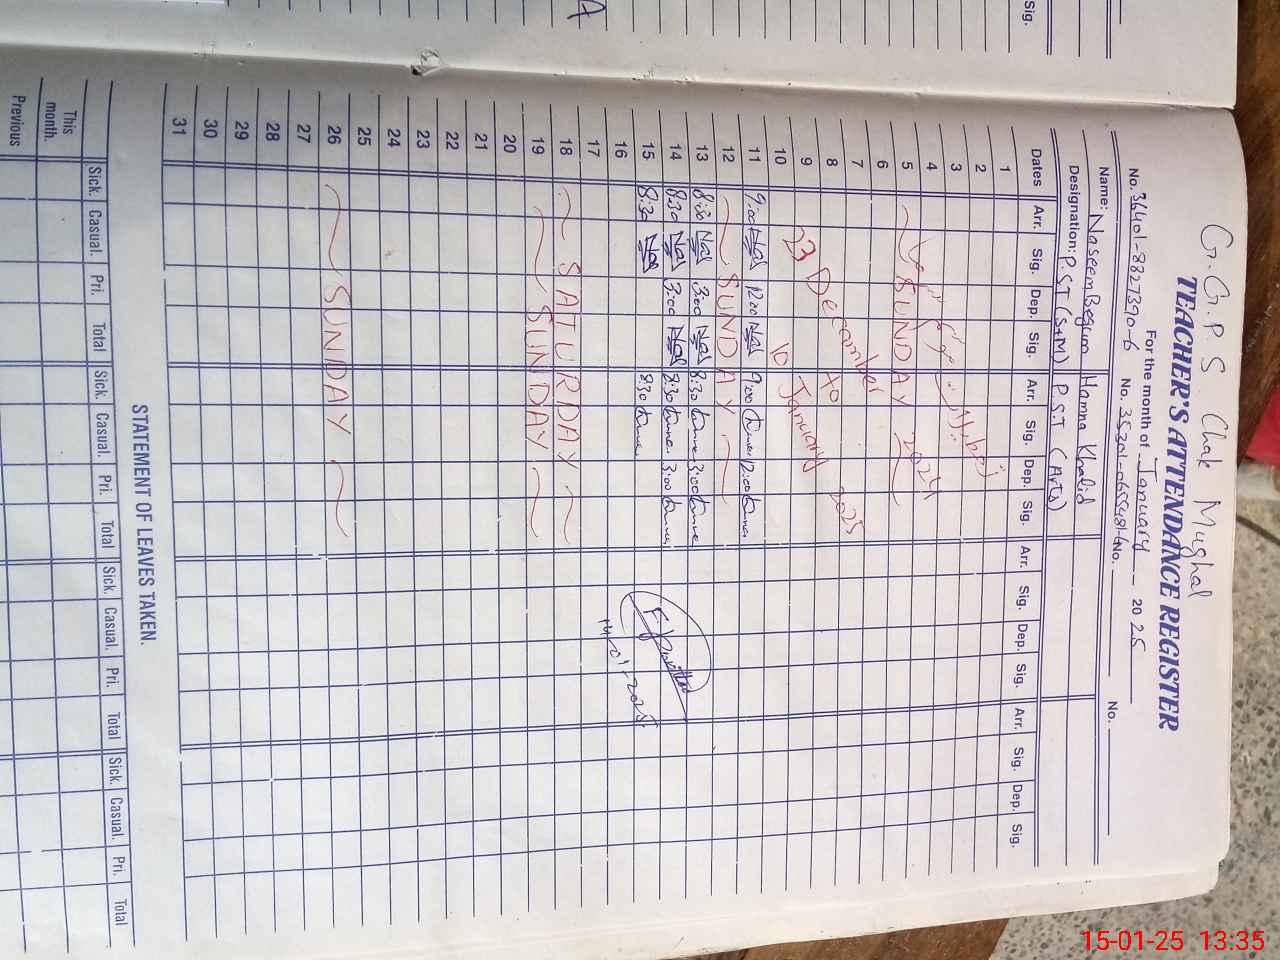 G.G.P.S. Chak Mughal
TEACHER'S ATTENDANCE REGISTER
For the month of January 2025
No. 36401-8827390-6 No. No. No.
Name: Naseem Begum Hamna Khalid
Designation: P.ST (S+M) P.S.T (Arts)
Dates Arr. Sig. Dep. Sig. Arr. Sig. Dep. Sig. Arr. Sig. Dep. Sig. Arr. Sig. Dep. Sig.
1
2
3
4
5 SUNDAY
6
7
8
9
10
23 December 2024
to
10 January 2025
11 9:00 Nas 12:00 Nas 9:00 12:00
12 SUNDAY
13 8:30 Nas 3:00 Nas 8:30 3:00
14 8:30 Nas 3:00 Nas 8:30 3:00
15 8:30 Nas 8:30
14-01-2025
16
17
18 SATURDAY
19 SUNDAY
20
21
22
23
24
25
26 SUNDAY
27
28
29
30
31
STATEMENT OF LEAVES TAKEN.
Sick. Casual. Pri. Total Sick. Casual. Pri. Total Sick. Casual. Pri. Total Sick. Casual. Pri. Total
This month.
Previous
Sig.
15-01-25 13:35